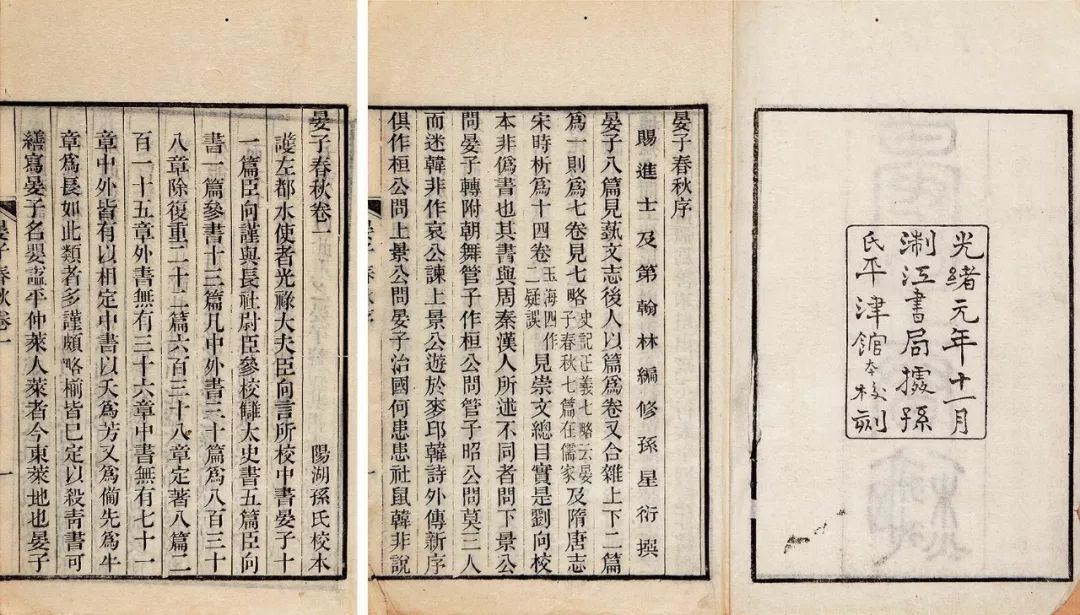 光緒元年十一月
淛江書局據孫
氏平津館本校刻
晏子春秋序
賜進士及第翰林編修孫星衍撰
晏子八篇見藝文志後人以篇爲卷又合雜上下二篇
爲一則爲七卷見七略史記正義七略云晏子春秋七篇在儒家及隋唐志
宋時析爲十四卷玉海四作二疑誤見崇文總目實是劉向校
本非僞書也其書與周秦漢人所述不同者問下景公
問晏子轉附朝舞管子作桓公問管子昭公問莫三人
而迷韓非作哀公諫上景公遊於麥邱韓詩外傳新序
俱作桓公問上景公問晏子治國何患患社鼠韓非說
晏子春秋卷一
陽湖孫氏校本
護左都水使者光祿大夫臣向言所校中書晏子十
一篇臣向謹與長社尉臣參校讎太史書五篇臣向
書一篇參書十三篇凡中外書三十篇爲八百三十
八章除復重二十二篇六百三十八章定著八篇二
百一十五章外書無有三十六章中書無有七十一
章中外皆有以相定中書以夭爲芳又爲備先爲牛
章爲長如此類者多謹頗略椾皆已定以殺青書可
繕寫晏子名嬰諡平仲萊人萊者今東萊地也晏子
晏子春秋卷一
一